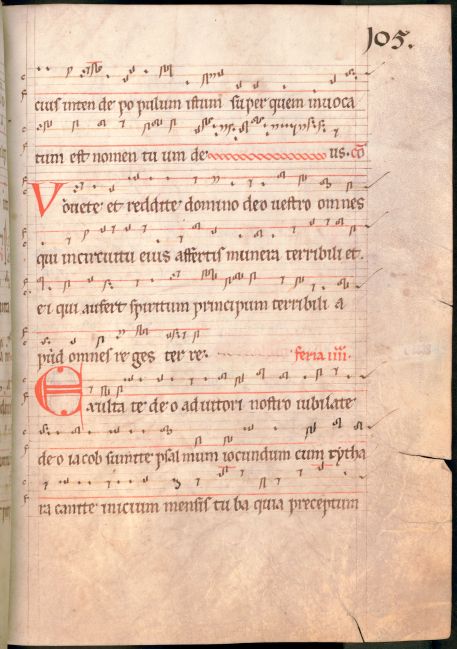 105.
cius inten de po pulum istum super quem invoca
tum est nomen tu um de us. cō
Vovete et reddite domino deo vestro omnes
qui incircuitu eius affertis munera terribili et
ei qui aufert spiritum principum terribili a
pud omnes re ges ter re. feria iiii.
Exulta te de o adiutori nostro iubilate
de o iacob sumite psal mum iocundum cum cytha
ra canite inicium mensis tu ba quia preceptum